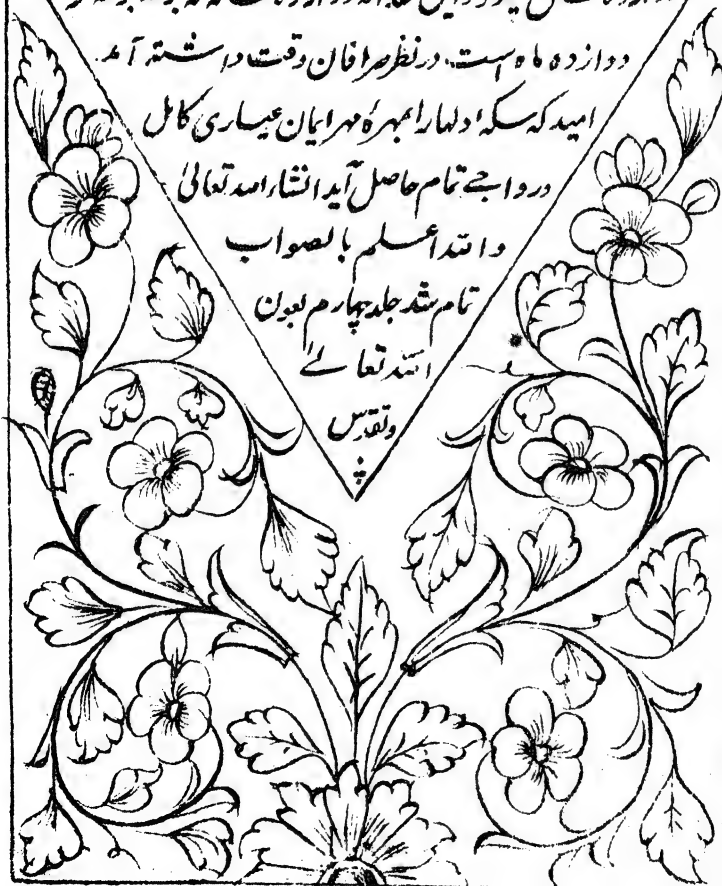 دوازده ماه است در نظر صرافان وقت داشته آمد
امید که سکه دلها را بمهرۀ مهر ایمان عیاری کامل
و رواجے تمام حاصل آید انشاء الله تعالیٰ
والله اعلم بالصواب
تمام شد جلد چهارم بعون
الله تعالےٰ
وتقدس